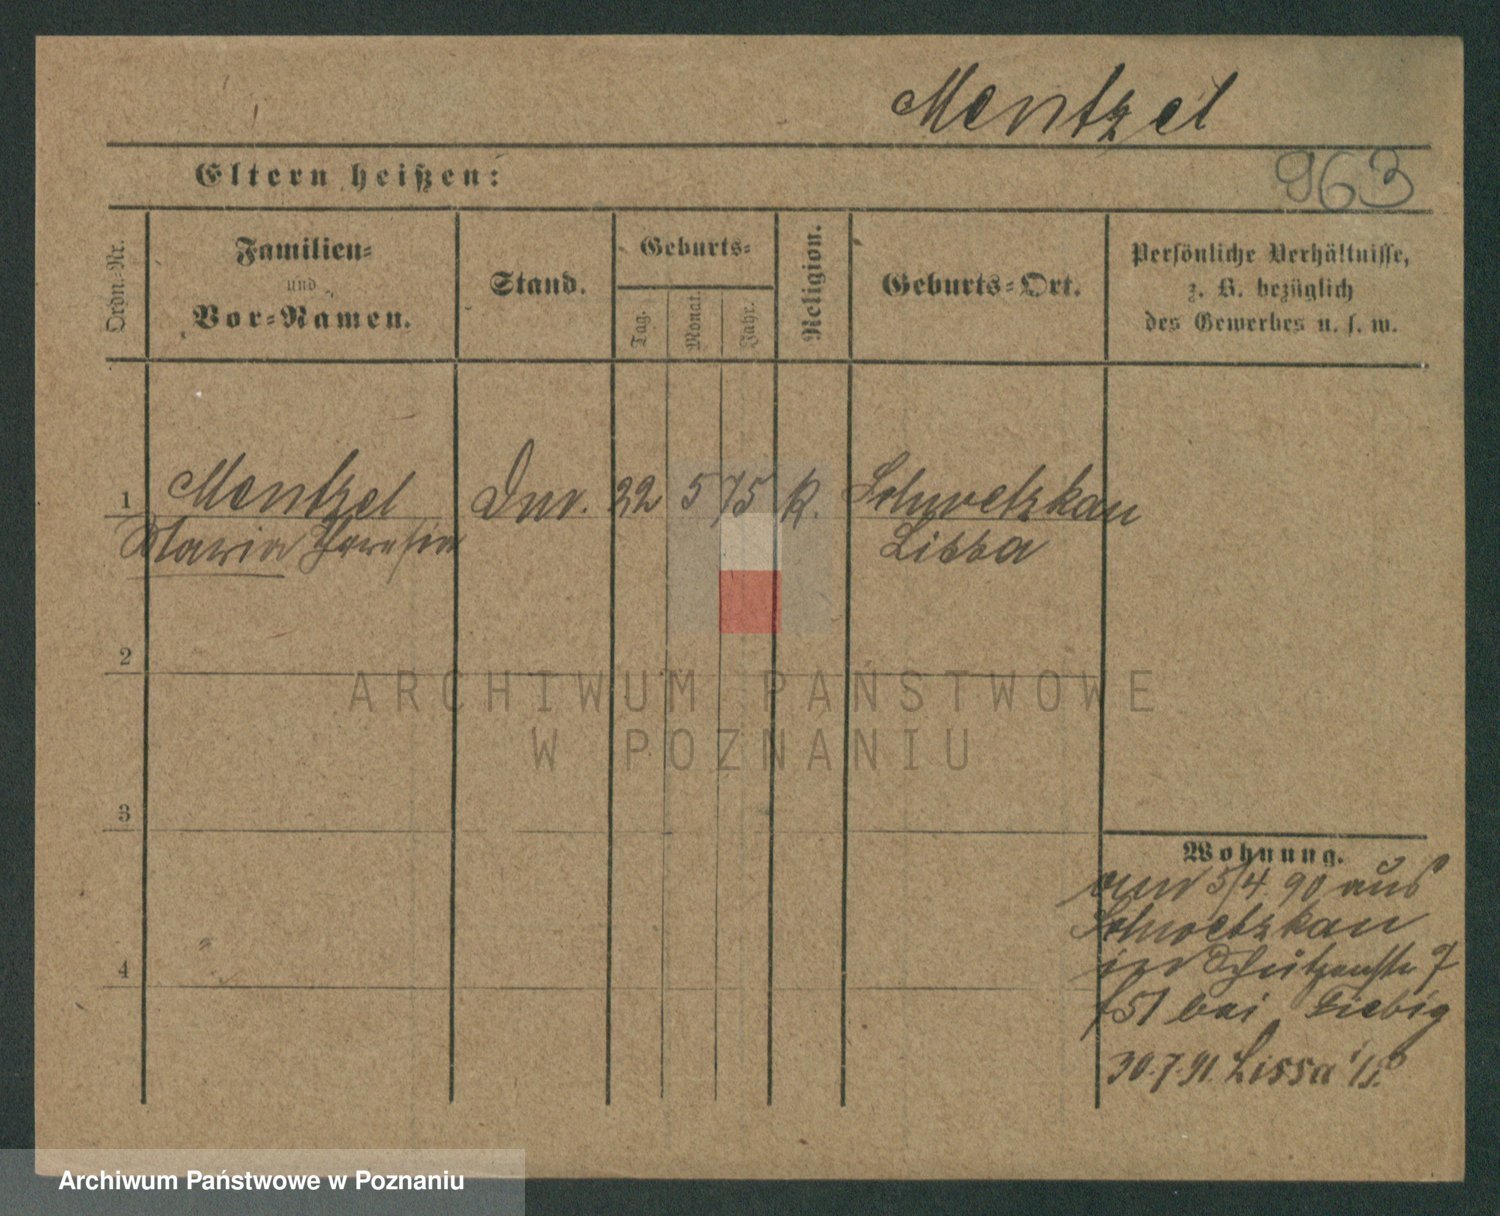 Mentzel
963
Eltern heißen:
Ordn.-Nr.
Familien-
und
Vor-Namen.
Stand.
Geburts-
Tag.
Monat.
Jahr.
Religion.
Geburts-Ort.
Persönliche Verhältnisse,
z. B. bezüglich
des Gewerbes u. s. w.
1 Mentzel 22 5 75 k. Schwetzkau
Maria Theresia Lissa
2
3
4
Wohnung.
5/4. 90 aus
Schwetzkau
in Schützenstr 7
bei Fiebig
30.7.91. Lissa i/P
ARCHIWUM PAŃSTWOWE
W POZNANIU
Archiwum Państwowe w Poznaniu